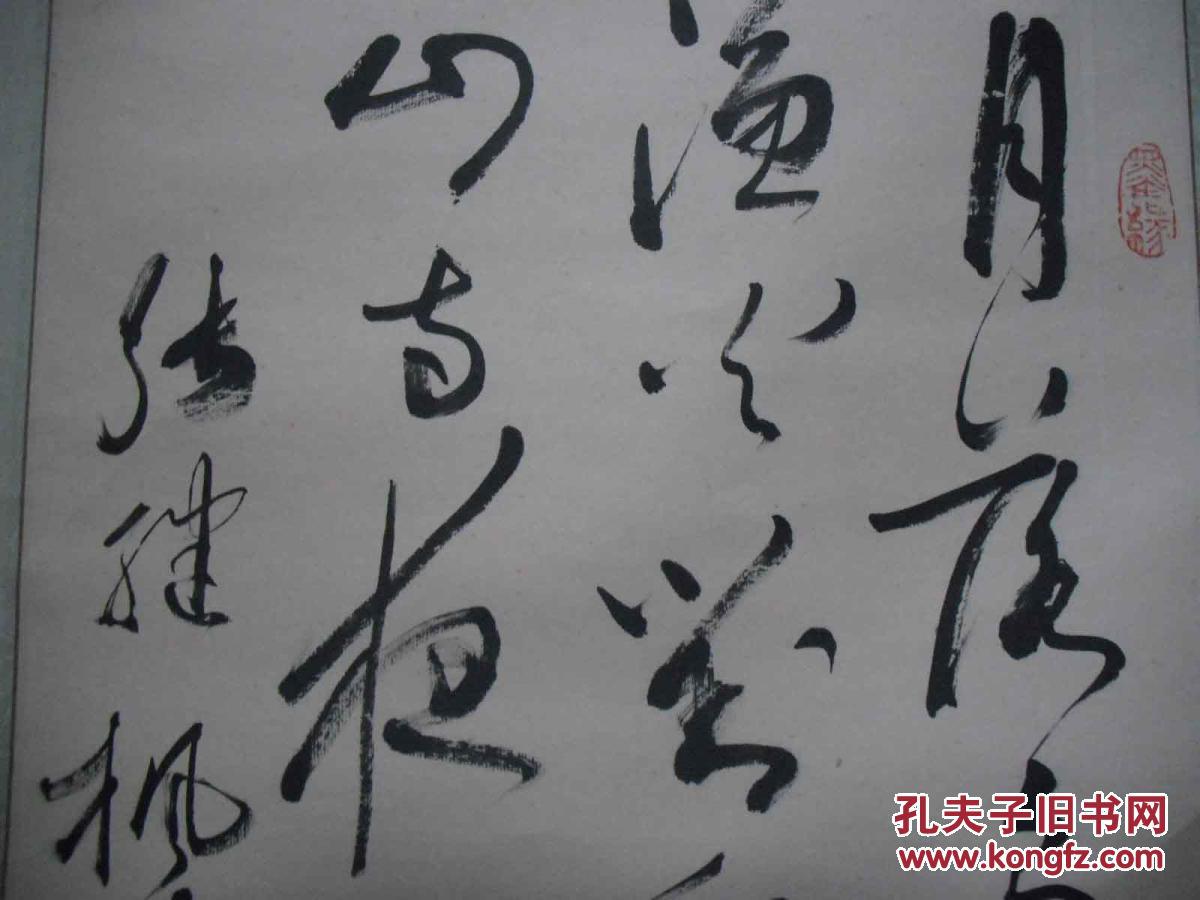 月落
渔火对
山寺夜
张继枫
孔夫子旧书网
www.kongfz.com